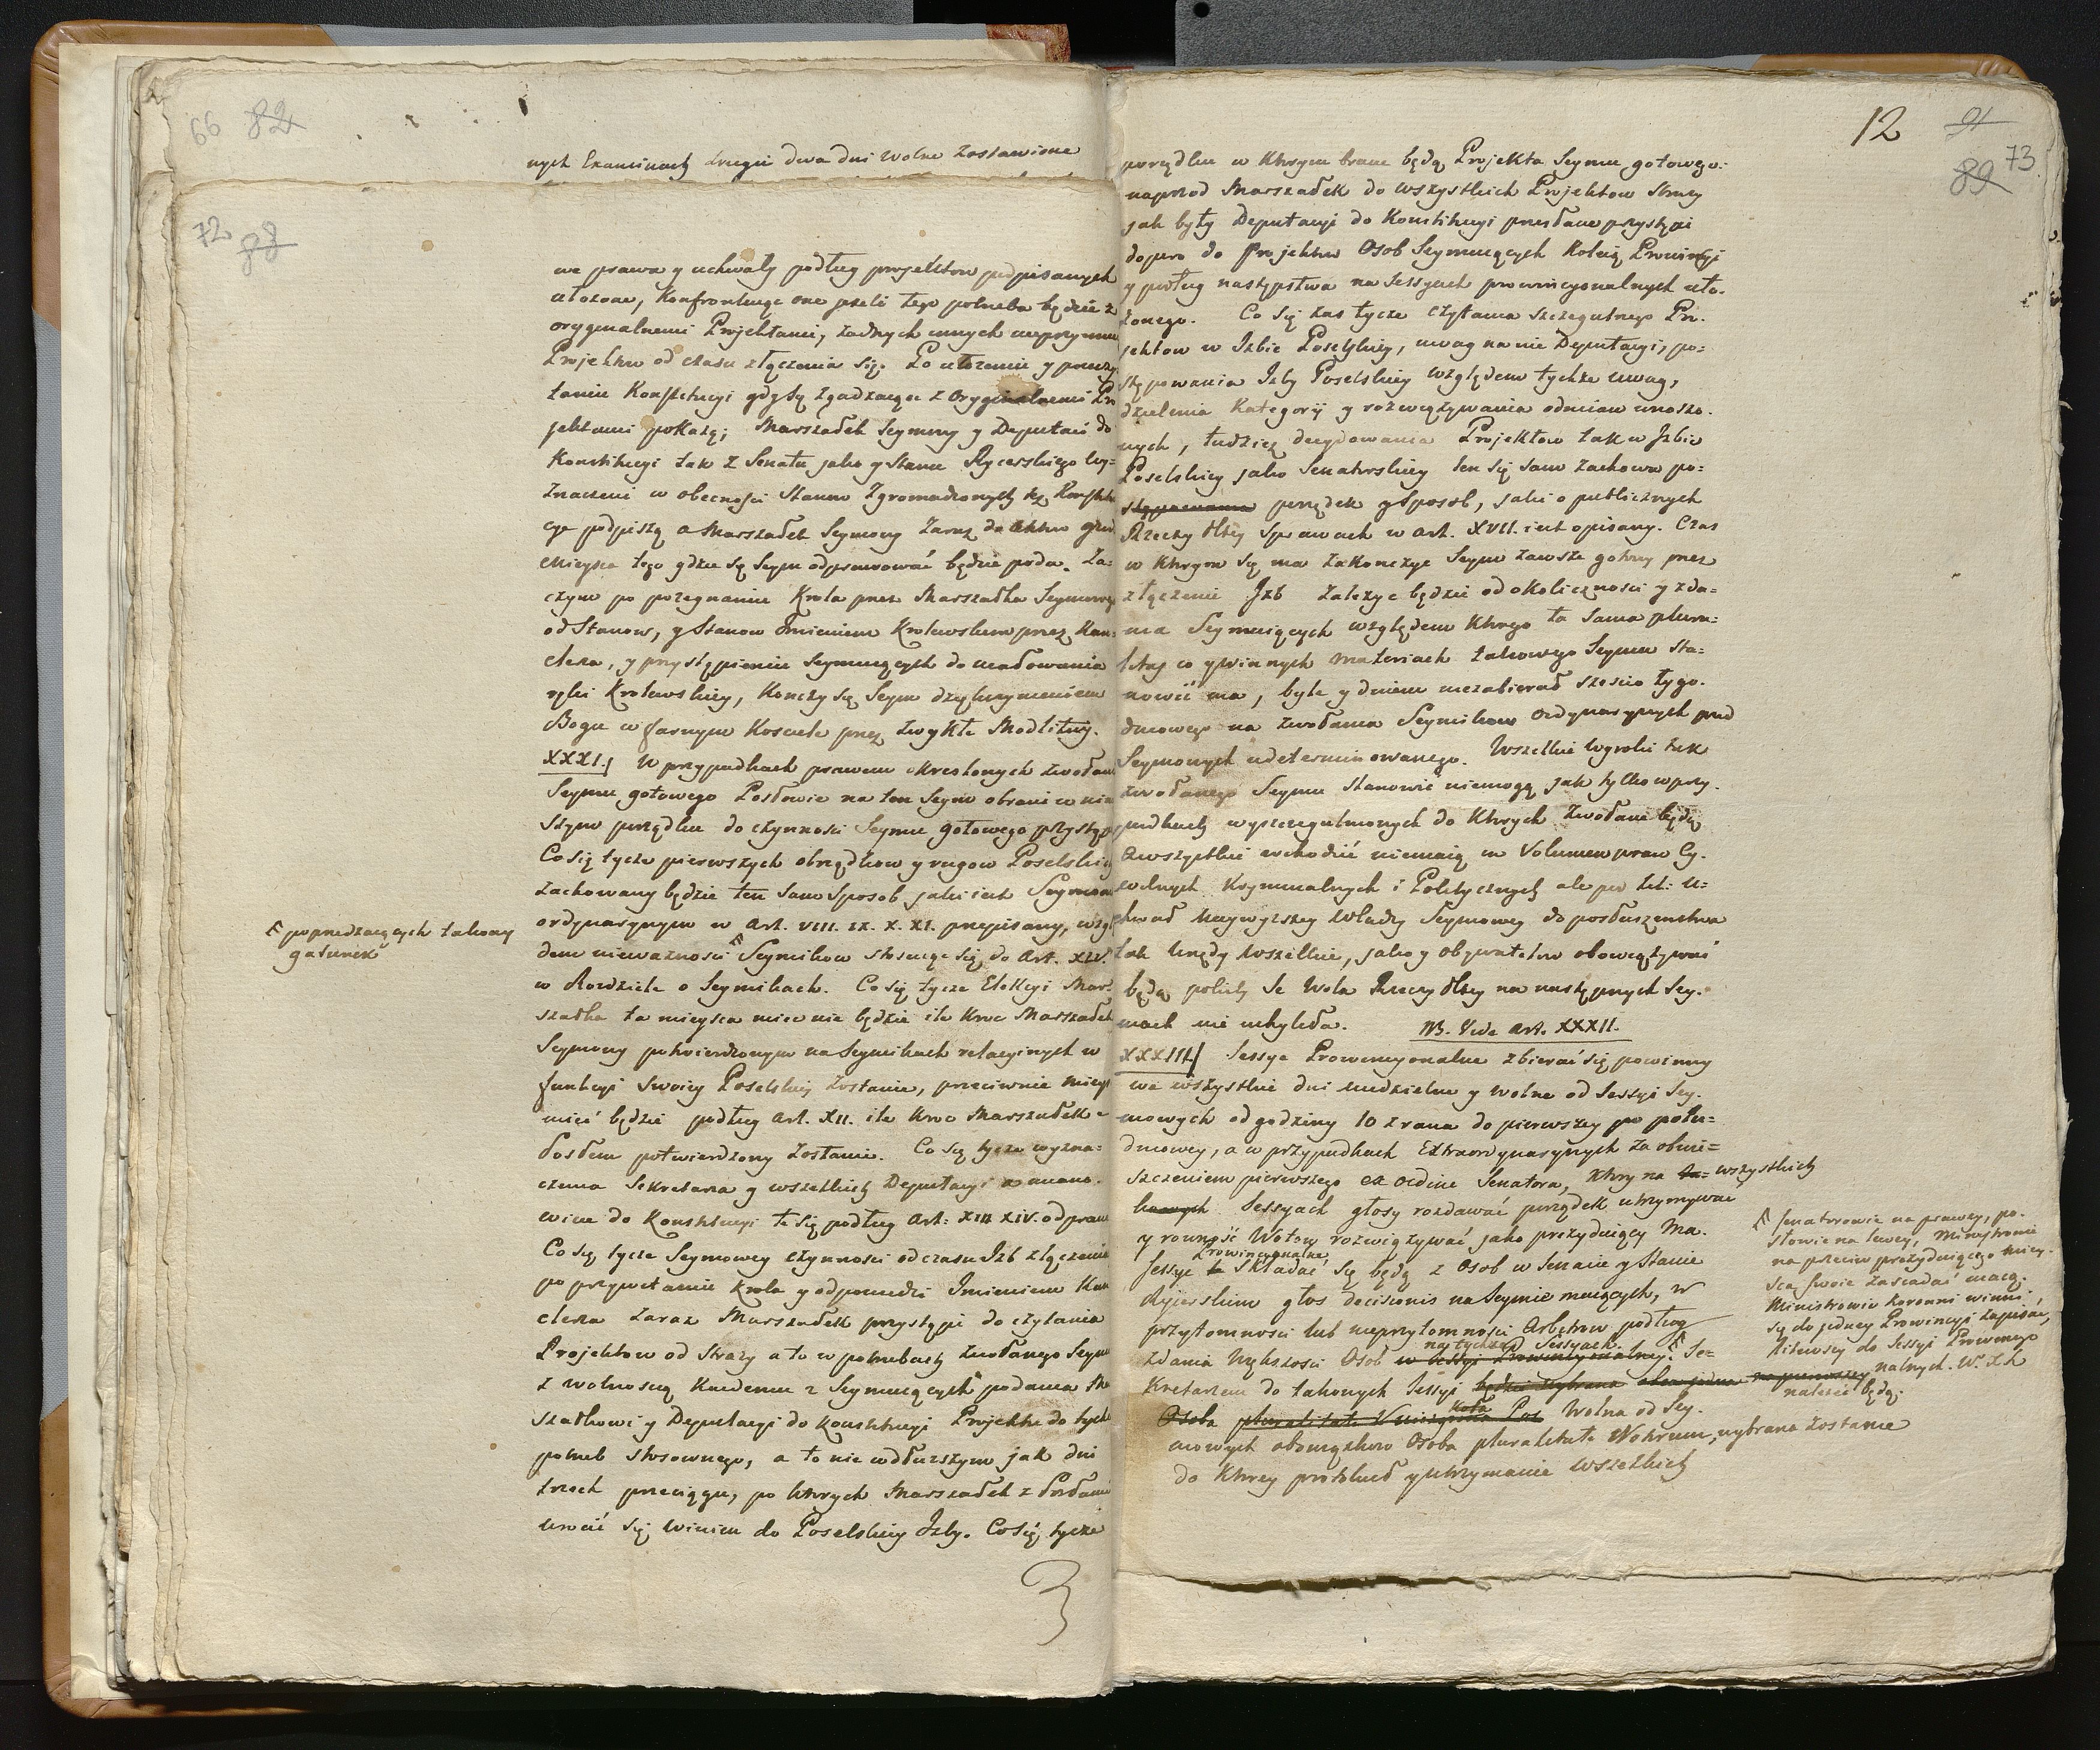 66 82
nych Examinach drugie dwa dni wolne zostawione
72 88
we prawa y uchwały podług projektow podpisanych
ułożone, Konfrontuiąc one jeżeli tego potrzeba będzie z
oryginalnemi Projektami, żadnych innych nieprzyimu
Projektow od czasu złączenia się. Po ułożeniu y przeczy
taniu Konstitucyi gdy się zgadzaiące z Oryginalnemi Pro
jektami pokażą; Marszałek Seymowy y Deputaci do
Konstitucyi tak z Senatu jako y Stanu Rycerskiego wy=
znaczeni w obecności Stanow zgromadzonych też Konstitu
cye podpiszą a Marszałek Seymowy zaraz do Aktow grod
Mieysca tego gdzie się Seym odprawować będzie poda. Za=
czym po pożegnaniu Krola przez Marszałka Seymowego
od Stanow, y Stanow Imieniem Krolewskim przez Kan=
clerza, y przystąpieniu Seymuiących do ucałowania
ręki Krolewskiey, kończy się Seym dziękczynieniem
Bogu w farnym Kościele przez zwykłe Modlitwy.
XXXI. W przypadkach prawem okreslonych zwołani
Seymu gotowego Posłowie na ten Seym obrani w niż
szym porządku do czynności Seymu gotowego przystąp
Co się tycze pierwszych obrządkow y rugow Poselskich
zachowany będzie ten sam sposob jaki iest Seymom
ordynaryinym w Art. VIII. IX. X. XI. przepisany, wzglę
^ poprzedzaiących takowy
gatunek
dem nieważności ^ Seymikow stosuiąc się do Art. XIV.
w Rozdziele o Seymikach. Co się tycze Elekcyi Mar=
szałka ta mieysca miec nie będzie ile kroc Marszałek
Seymowy potwierdzonym na Seymikach relacyinych w
funkcyi swoiey Poselskiey zostanie, przeciwnie mieysce
mieć będzie podług Art. XII. ile kroc Marszałek
Posłem potwierdzony zostanie. Co się tycze wyzna=
czenia Sekretarza y wszelkich Deputacyi a miano
wicie do Konstitucyi te się podług Art: XIII XIV. odprawi
Co się tycze Seymowey czynności od czasu Izb złączenia
po przywitaniu Krola y odpowiedzi Imieniem Kan
clerza zaraz Marszałek przystąpi do czytania
Projektow od Straży a to w potrzebach zwołanego Seymu
z wolnoscią każdemu z Seymuiących podania Mar
szałkowi y Deputacyi do Konstitucyi Projektu do tych
potrzeb stosownego, a to nie w dłuższym jak dni
trzech przeciągu, po ktorych Marszałek z Posłami
wrocić się winien do Poselskiey Izby. Co się tycze
3
12 91
89 73
porządku w ktorym brane będą Projekta Seymu gotowego:
naprzod Marszałek do wszystkich Projektow Straży
jak były Deputacyi do Konstitucyi przesłane przystąpi
dopiero do Projektow Osob Seymuiących koleią Prowincyi
y podług następstwa na Sessyach prowincyonalnych uło=
żonego. Co się zas tycze czytania szczegulnego Pro=
jektow w Izbie Poselskiey, uwag na nie Deputacyi, po=
stępowania Izby Poselskiey względem tychże uwag,
dzielenia Kategoryi y rozwiązywania odmian wnoszo=
nych, tudzież decydowania Projektow tak w Izbie
Poselskiey jako Senatorskiey ten się sam zachowa po=
stępowania porządek y Sposob, jaki o publicznych
Rzeczy Pltey sprawach w Art. XVII. iest opisany. Czas
w ktorym się ma zakończyc Seym zawsze gotowy przez
złączenie Izb zależyc będzie od okoliczności y zda=
nia Seymuiących względem ktorego ta sama plura=
litas co y w innych materiach takowego Seymu sta=
nowić ma, byle y dniem niezabierał sześcio tygo=
dniowego na zwołania Seymikow Ordynaryinych przed
Seymowych udeterminowanego. Wszelkie wyroki tak
zwołanego Seymu stanowić niemogą jak tylko w przy=
padkach wyszczegulnionych do ktorych zwołane będą
a wszystkie wchodzić niemaią in Volumen praw Cy=
wilnych Kryminalnych i Politycznych ale pod tit: U=
chwał Naywyższey Władzy Seymowey do posłuszenstwa
tak Urzędy wszelkie, jako y obywatelow obowiązywać
będą poki ich Wola Rzeczy Pltey na następnych Sey=
mach nie uchyliła. NB. Vide Art. XXXII.
XXXIII. Sessye Prowincyonalne zbierać się powinny
we wszystkie dni niedzielne y wolne od Sessyi Sey=
mowych od godziny 10 z rana do pierwszey po połu=
dniowey, a w przypadkach Extraordynaryinych za obwie=
szczeniem pierwszego ex ordine Senatora, ktory na ta= wszystkich
kowych Sessyach głosy rozdawać porządek utrzymywać
y rowność Wotow rozwiązywać jako prezyduiący ma.
Prowincyonalne
Sessye te składać się będą z Osob w Senacie y Stanie
Rycerskim głos decisionis na Seymie maiących, w
przytomności lub nieprzytomności Arbitrow podług
na tychże Sessyach.
zdania większości Osob w Sessyi Prowincyonalney. ^ Se=
kretarzem do takowych Sessyi będzie wybrana na pierwszey
Koła
Osoba pluralitate Pos Wolna od Sey=
mowych obowiązkow Osoba pluralitate Votorum, wybrana zostanie
do ktorey protokuł y utrzymanie wszelkich
^ Senatorowie na prawey, po=
słowie na lewey, Ministrowie
na przeciw prezyduiącego miey=
sca swoie zasiadać maią.
Ministrowie Koronni winni
się do jedney Prowincyi zapisać,
Litewscy do Sessyi Prowincyo
nalnych W. X. L.
należeć będą.